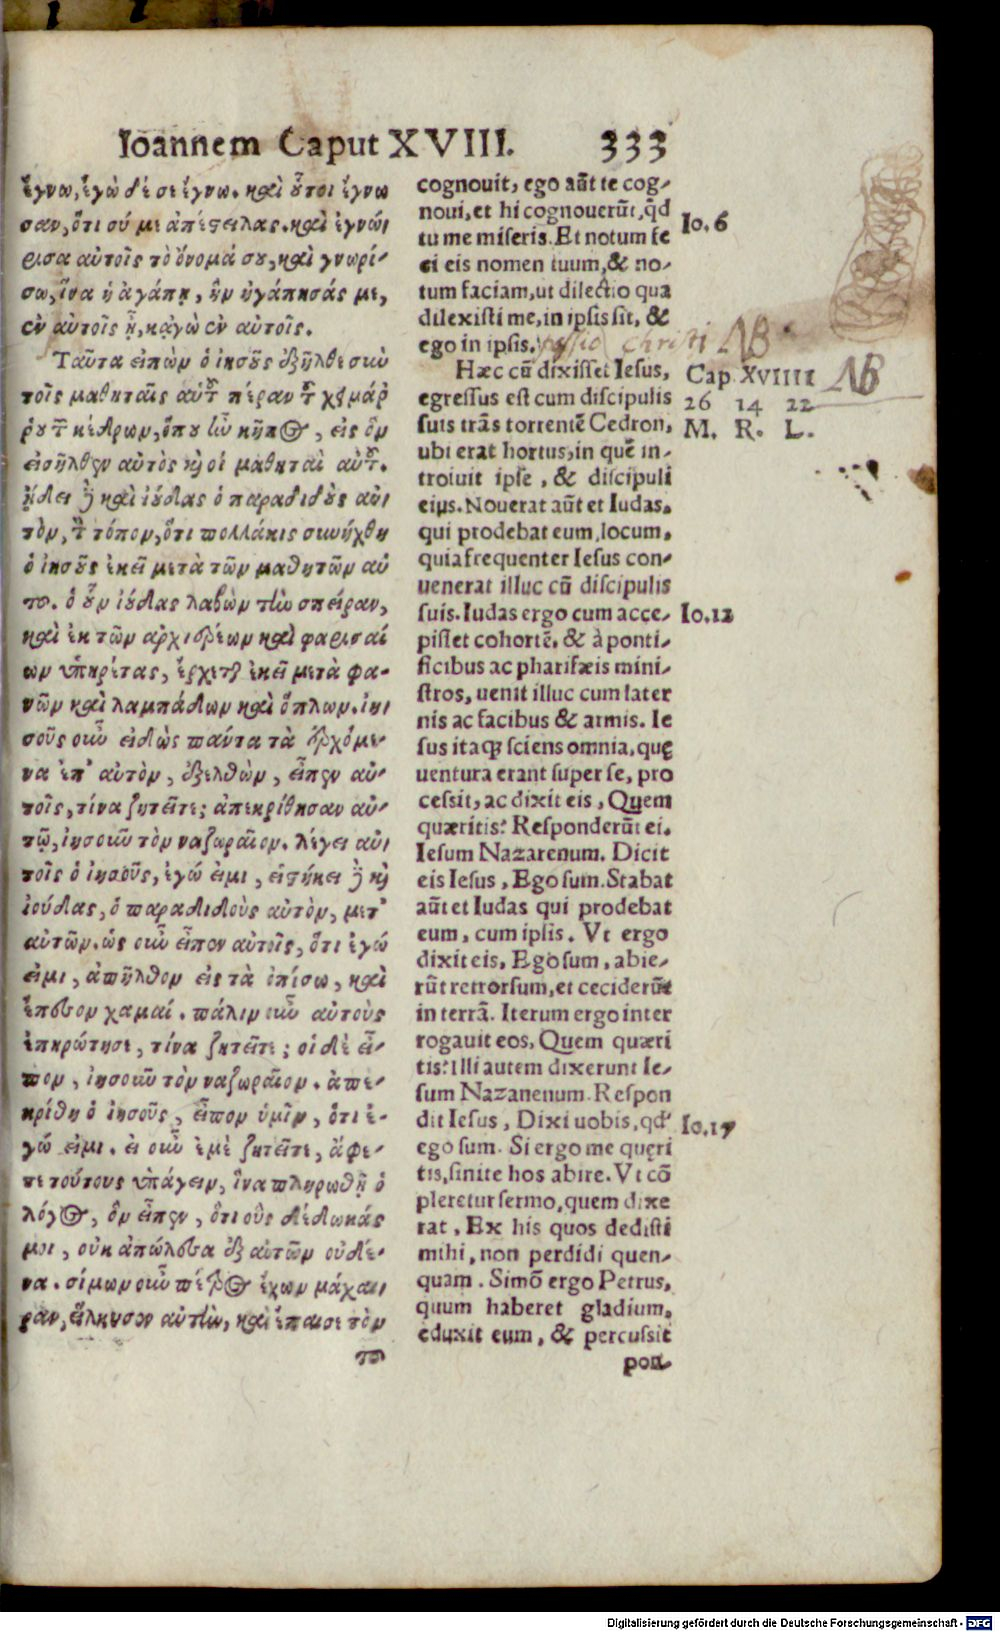 Ioannem Caput XVIII. 333
ἔγνω, ἐγὼ δέ σε ἔγνω. καὶ οὗτοι ἔγνω
σαν, ὅτι σύ με ἀπέστειλας. καὶ ἐγνώ/
ρισα αὐτοῖς τὸ ὄνομά σου, καὶ γνωρί/
σω, ἵνα ἡ ἀγάπη, ἣν ἠγάπησάς με,
ἐν αὐτοῖς ᾖ, κᾀγὼ ἐν αὐτοῖς.
Ταῦτα εἰπὼν ὁ ἰησοῦς ἐξῆλθε σὺν
τοῖς μαθηταῖς αὐτοῦ πέραν τοῦ χειμάρ
ρου τοῦ κέδρων, ὅπου ἦν κῆπος, εἰς ὃν
εἰσῆλθεν αὐτὸς καὶ οἱ μαθηταὶ αὐτοῦ.
ᾔδει δὲ καὶ ἰούδας ὁ παραδιδοὺς αὐ/
τὸν, τὸν τόπον, ὅτι πολλάκις συνήχθη
ὁ ἰησοῦς ἐκεῖ μετὰ τῶν μαθητῶν αὐ
τοῦ. ὁ οὖν ἰούδας λαβὼν τὴν σπεῖραν,
καὶ ἐκ τῶν ἀρχιερέων καὶ φαρισαί
ων ὑπηρέτας, ἔρχεται ἐκεῖ μετὰ φα-
νῶν καὶ λαμπάδων καὶ ὅπλων. ἰη/
σοῦς οὖν εἰδὼς πάντα τὰ ἐρχόμε/
να ἐπ' αὐτὸν, ἐξελθὼν, εἶπεν αὐ/
τοῖς, τίνα ζητεῖτε; ἀπεκρίθησαν αὐ/
τῷ, ἰησοῦν τὸν ναζωραῖον. λέγει αὐ/
τοῖς ὁ ἰησοῦς, ἐγώ εἰμι, εἱστήκει δὲ καὶ
ἰούδας, ὁ παραδιδοὺς αὐτὸν, μετ'
αὐτῶν. ὡς οὖν εἶπον αὐτοῖς, ὅτι ἐγώ
εἰμι, ἀπῆλθον εἰς τὰ ὀπίσω, καὶ
ἔπεσον χαμαί. πάλιν οὖν αὐτοὺς
ἐπηρώτησε, τίνα ζητεῖτε; οἱ δὲ εἶ/
πον, ἰησοῦν τὸν ναζωραῖον. ἀπε/
κρίθη ὁ ἰησοῦς, εἶπον ὑμῖν, ὅτι ἐ/
γώ εἰμι. εἰ οὖν ἐμὲ ζητεῖτε, ἄφε/
τε τούτους ὑπάγειν, ἵνα πληρωθῇ ὁ
λόγος, ὃν εἶπεν, ὅτι οὓς δέδωκάς
μοι, οὐκ ἀπώλεσα ἐξ αὐτῶν οὐδέ/
να. σίμων οὖν πέτρος ἔχων μάχαι/
ραν, εἵλκυσεν αὐτὴν, καὶ ἔπαισε τὸν
τοῦ
cognouit, ego aūt te cog/
noui, et hi cognouerūt, q̄d
tu me miseris. Et notum fe
ci eis nomen tuum, & no/
tum faciam, ut dilectio qua
dilexisti me, in ipsis sit, &
ego in ipsis.
Hæc cū dixisset Iesus,
egressus est cum discipulis
suis trās torrentē Cedron,
ubi erat hortus, in quē in/
troiuit ipse, & discipuli
eius. Nouerat aūt et Iudas,
qui prodebat eum, locum,
quia frequenter Iesus con/
uenerat illuc cū discipulis
suis. Iudas ergo cum acce/
pisset cohortē, & à ponti/
ficibus ac pharisæis mini/
stros, uenit illuc cum later
nis ac facibus & armis. Ie
sus itaq; sciens omnia, quę
uentura erant super se, pro
cessit, ac dixit eis, Quem
quæritis? Responderūt ei,
Iesum Nazarenum. Dicit
eis Iesus, Ego sum. Stabat
aūt et Iudas qui prodebat
eum, cum ipsis. Vt ergo
dixit eis, Ego sum, abie/
rūt retrorsum, et ceciderūt
in terrā. Iterum ergo inter
rogauit eos, Quem quæri
tis? Illi autem dixerunt Ie/
sum Nazanenum. Respon
dit Iesus, Dixi uobis, qd'
ego sum. Si ergo me quęri
tis, sinite hos abire. Vt cō
pleretur sermo, quem dixe
rat, Ex his quos dedisti
mihi, non perdidi quen/
quam. Simō ergo Petrus,
quum haberet gladium,
eduxit eum, & percussit
pon/
Io. 6
passio Christi NB
Cap XVIIII NB
26 14 22
M. R. L.
Io. 12
Io. 17
Digitalisierung gefördert durch die Deutsche Forschungsgemeinschaft - DFG